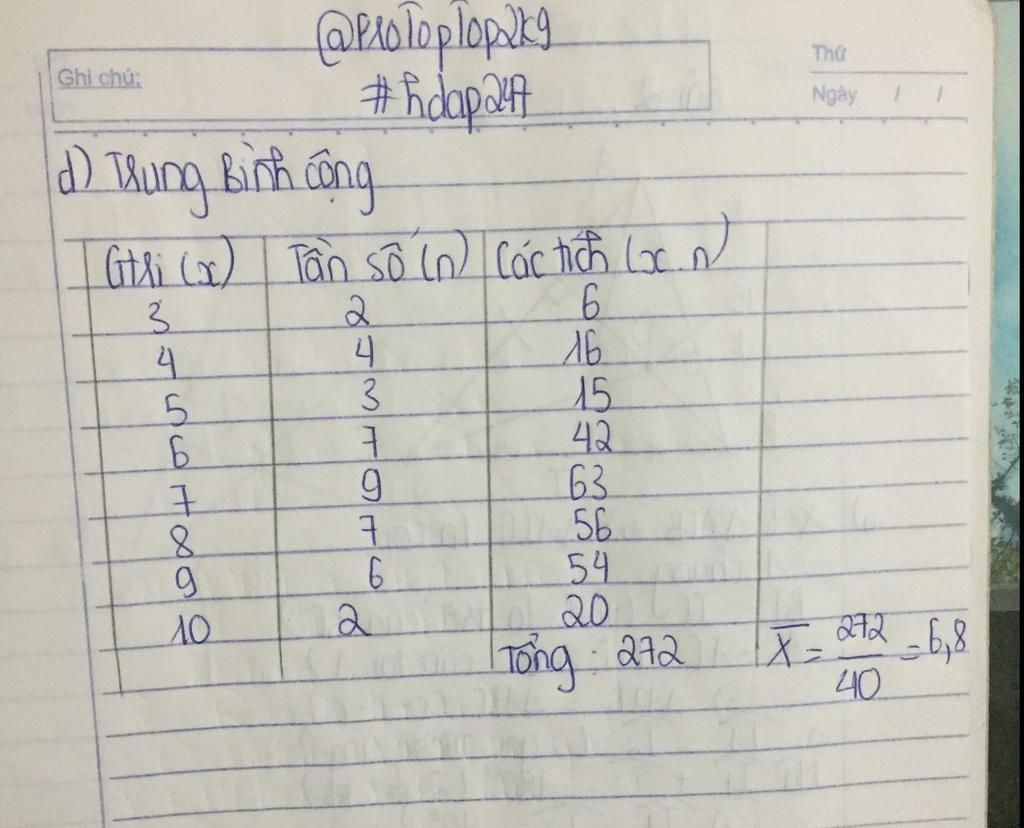 @proTopTop2k9
Ghi chú:
#hdap247
Thứ
Ngày / /
d) Trung Bình cộng
Gtrị (x) Tần số (n) Các tích (x.n)
3 2 6
4 4 16
5 3 15
6 7 42
7 9 63
8 7 56
9 6 54
10 2 20
Tổng: 272 X̅ = 272/40 = 6,8